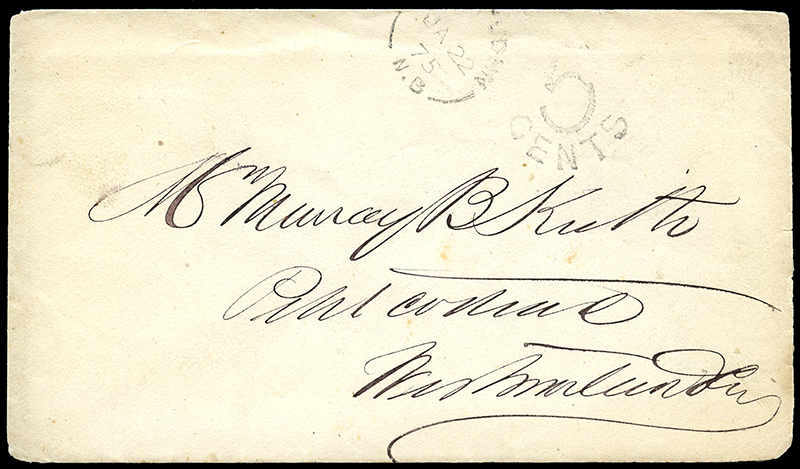 JOHN
JA 22
75
N.B
5
CENTS
Mr Murray B Keith
Westmorland Co